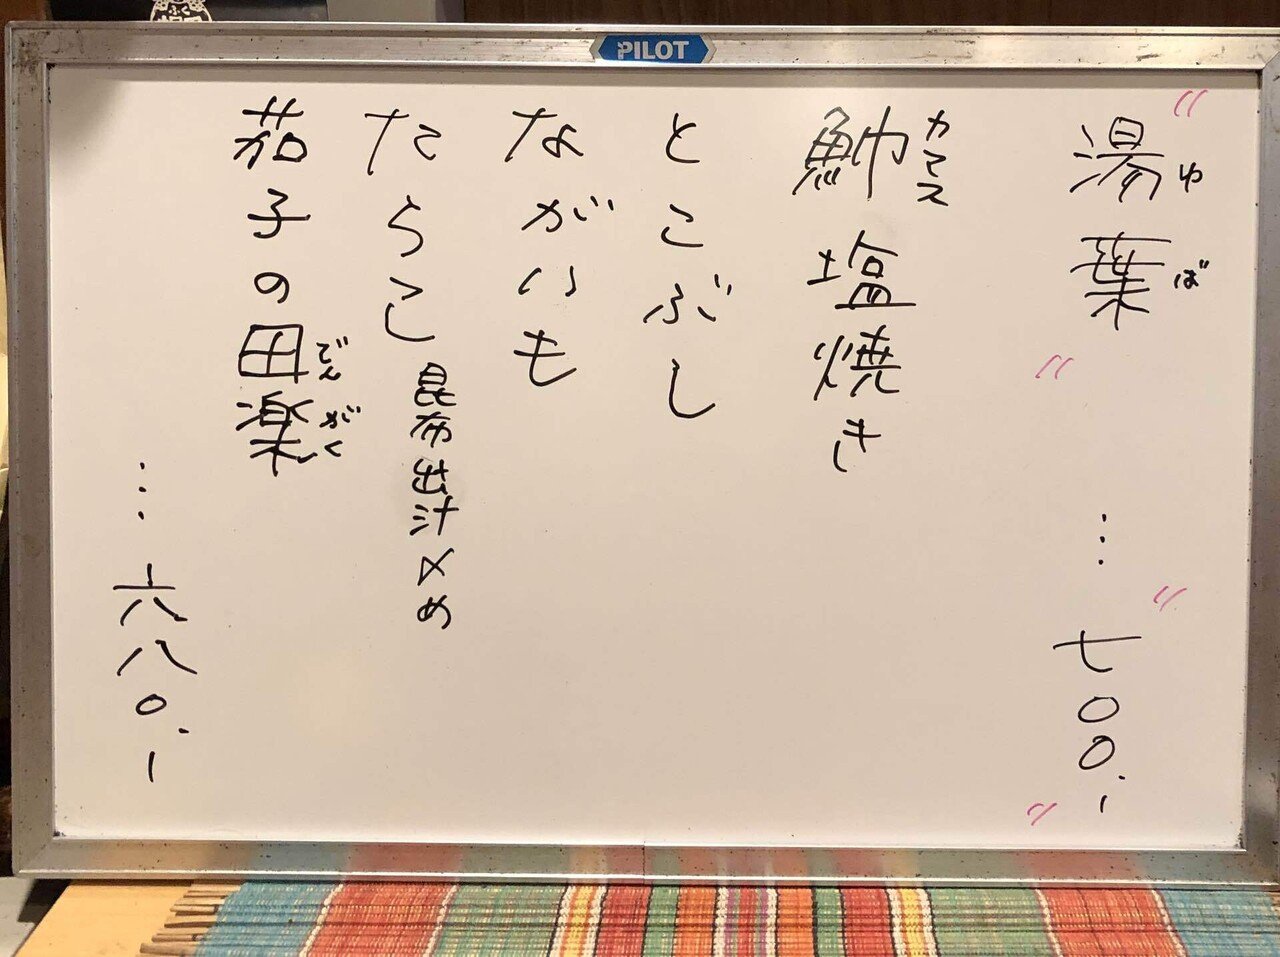 PILOT
〃湯葉〃
ゆば
…〃七〇〇.-〃
魳塩焼き
カマス
とこぶし
ながいも
たらこ昆布出汁〆め
茄子の田楽
でんがく
…六八〇.-